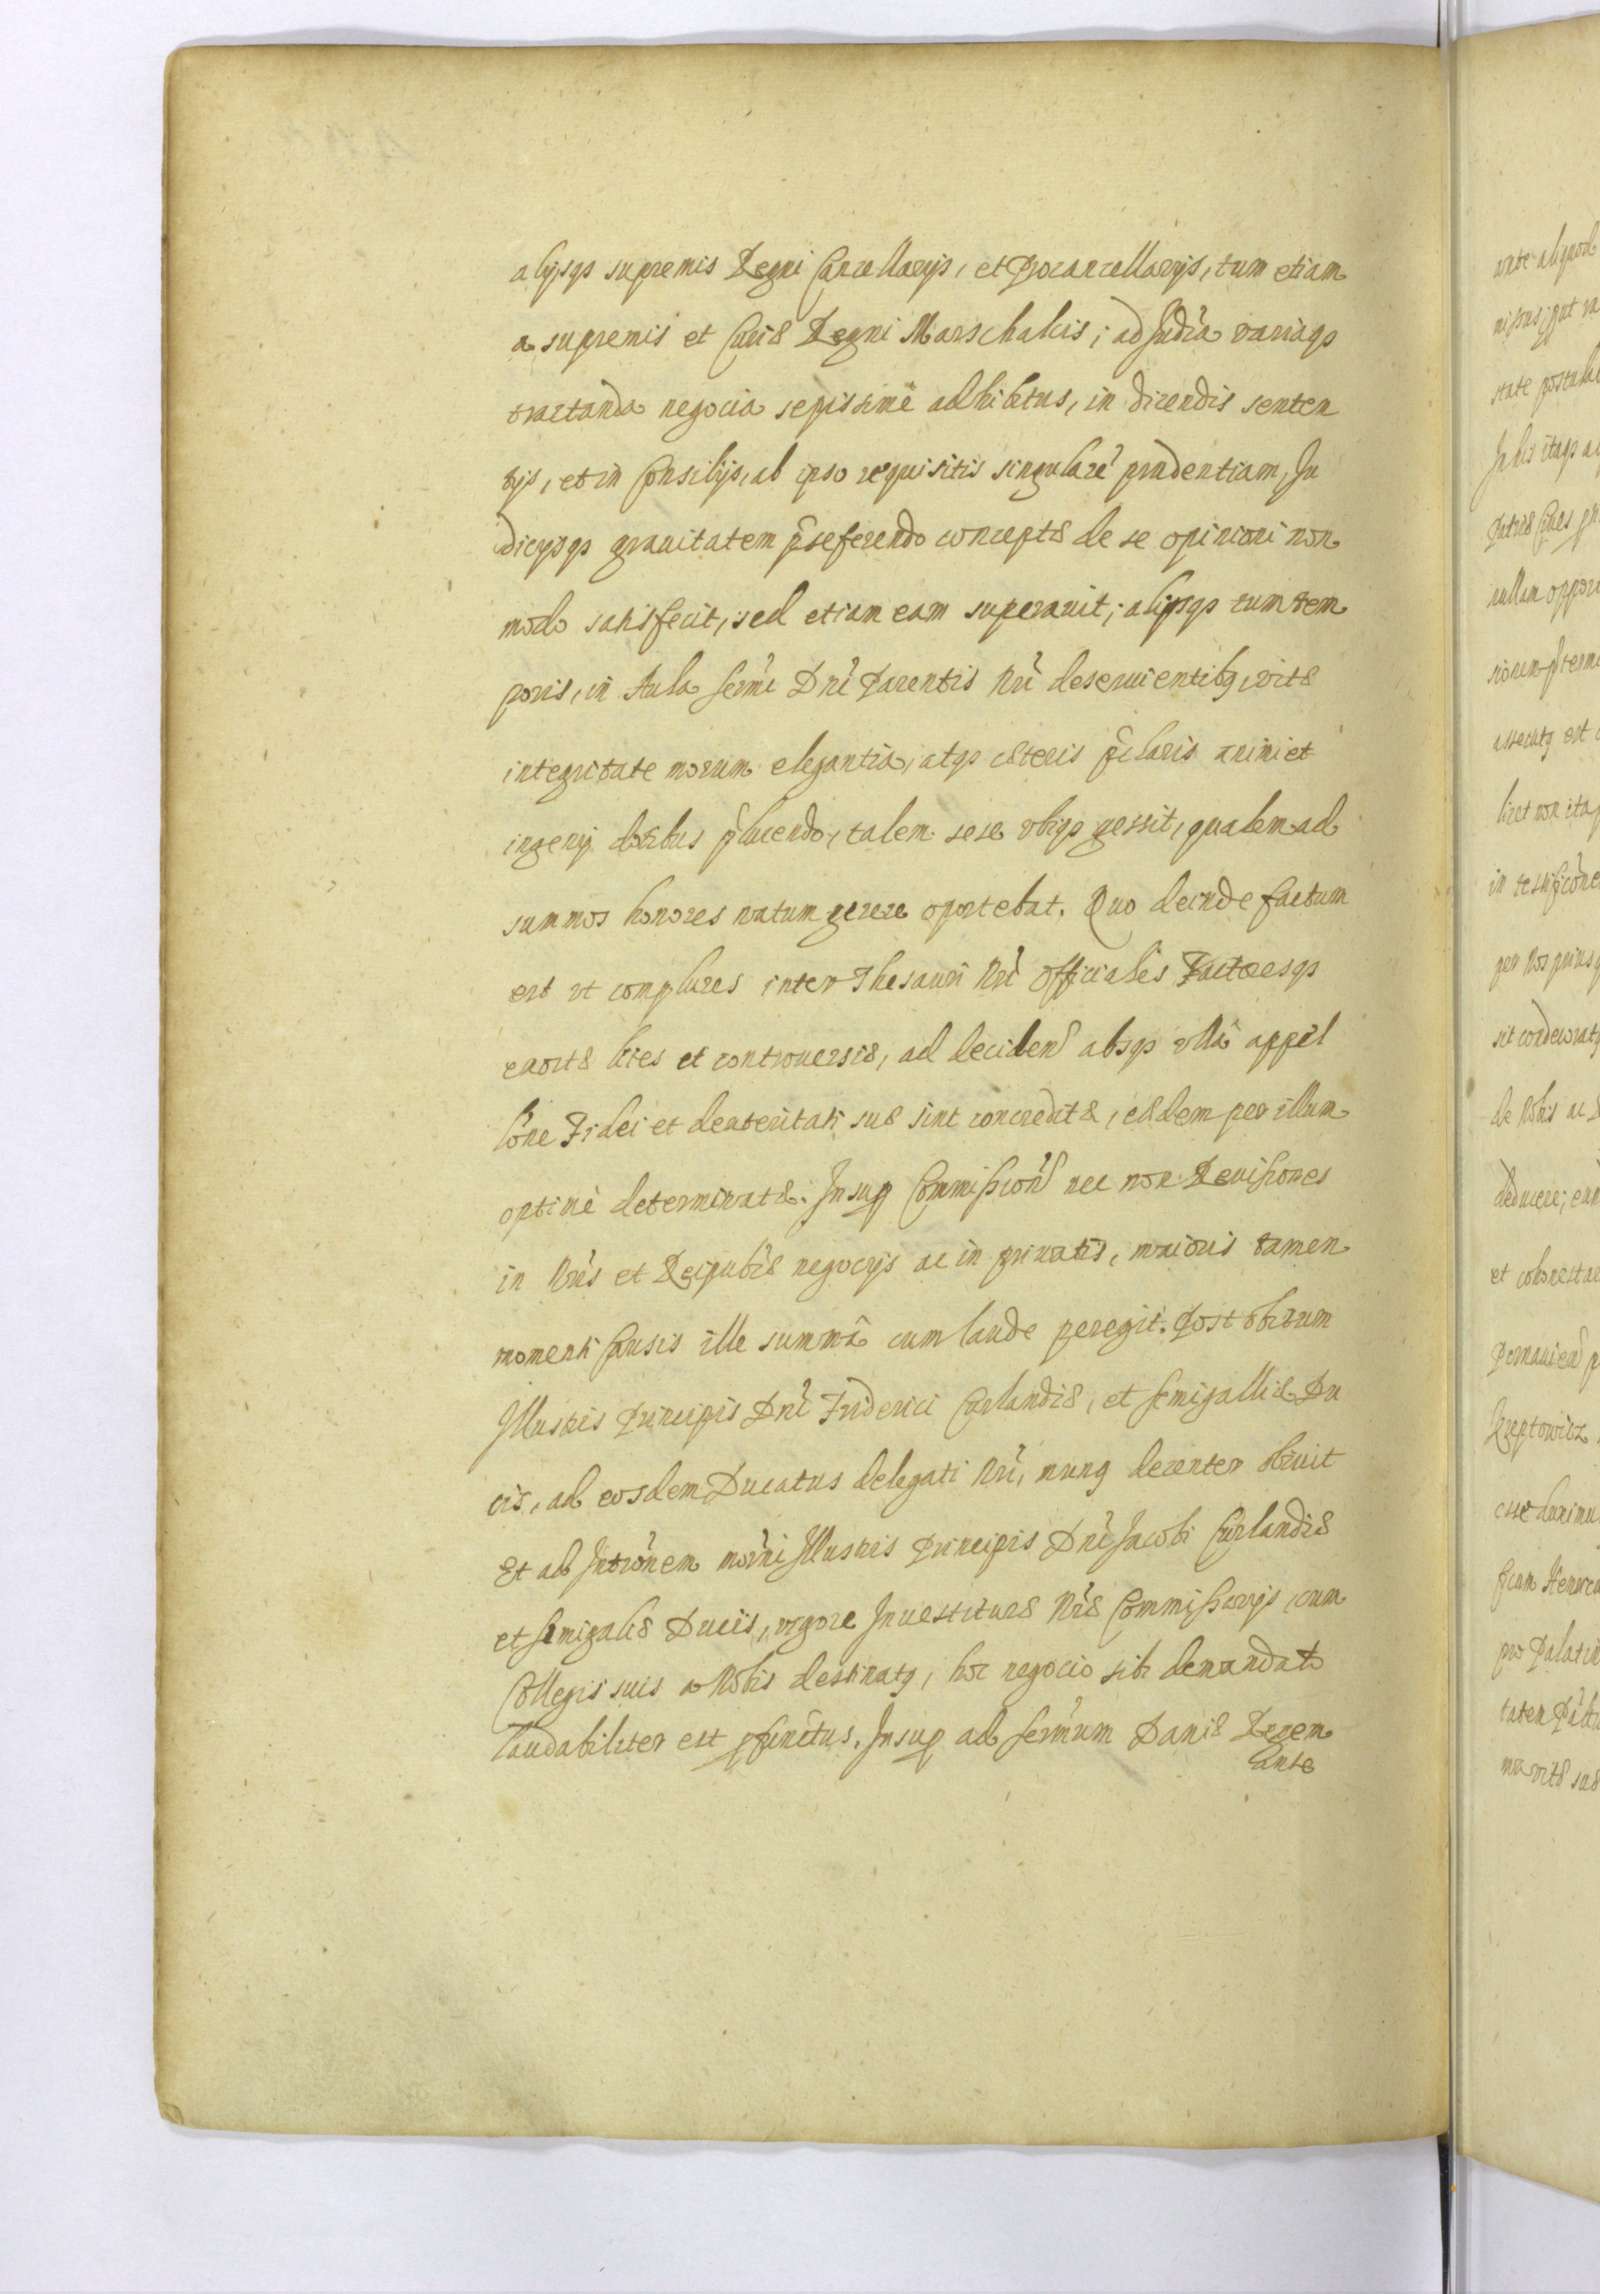 alijsqs supremis Regni Cancellarijs, et Procancellarijs, tum etiam
a supremis et Curiæ Regni Marschalcis; ad Judia variaqs
tractanda negocia sepissimè adhibitus, in dicendis senten
tijs, et in Consilijs, ab ipso requisitis singularē prudentiam, Ju
dicijsqs grauitatem pseferendo conceptæ de se opinioni non
modo satisfecit, sed etiam eam superauit; alijsqs tum tem
poris, in Aula Sermi Dni Parentis Nri deseruientibq, vitæ
integritate morum elegantia, atqs cæteris pclaris animi et
ingenij dotibus plucendo, talem sese vbiqs gessit, qualem ad
summos honores natum gerere oportebat. Quo deinde factum
est vt complures inter Thesauri Nri Officiales Factoresqs
exortæ lites et controuersiæ, ad deciden absqs vllâ appel
lone Fidei et dexteritati suæ sint concreditæ, eædem per illum
optimè determinatæ. Insup Commission nec non Reuisiones
in Nris et Reipublæ negocijs ac in priuatis, maioris tamen
momenti Causis ille summâ cum laude peregit. Post obitum
Illustris Principis Dni Friderici Curlandiæ, et Semigalliæ Du
cis, ad eosdem Ducatus delegati Nri, munq decenter obiuit
Et ad Introonem moderni Illustris Principis Dni Jacobi Curlandiæ
et Semigaliæ Ducis, vigore Inuestituræ Nræ Commissarijs, cum
Collegis suis a Nobis destinatq, hoc negocio sibi demandato
laudabiliter est pfunctus. Insup ad Sermum Daniæ Regem
ante
vate aliquod
state postulat
Jubis itaqs
nullam
licet non ita
per Nos prius
sit condecorat
de Nobis ac
deducere;
et cohonestar
esse duximu
pro Palatin